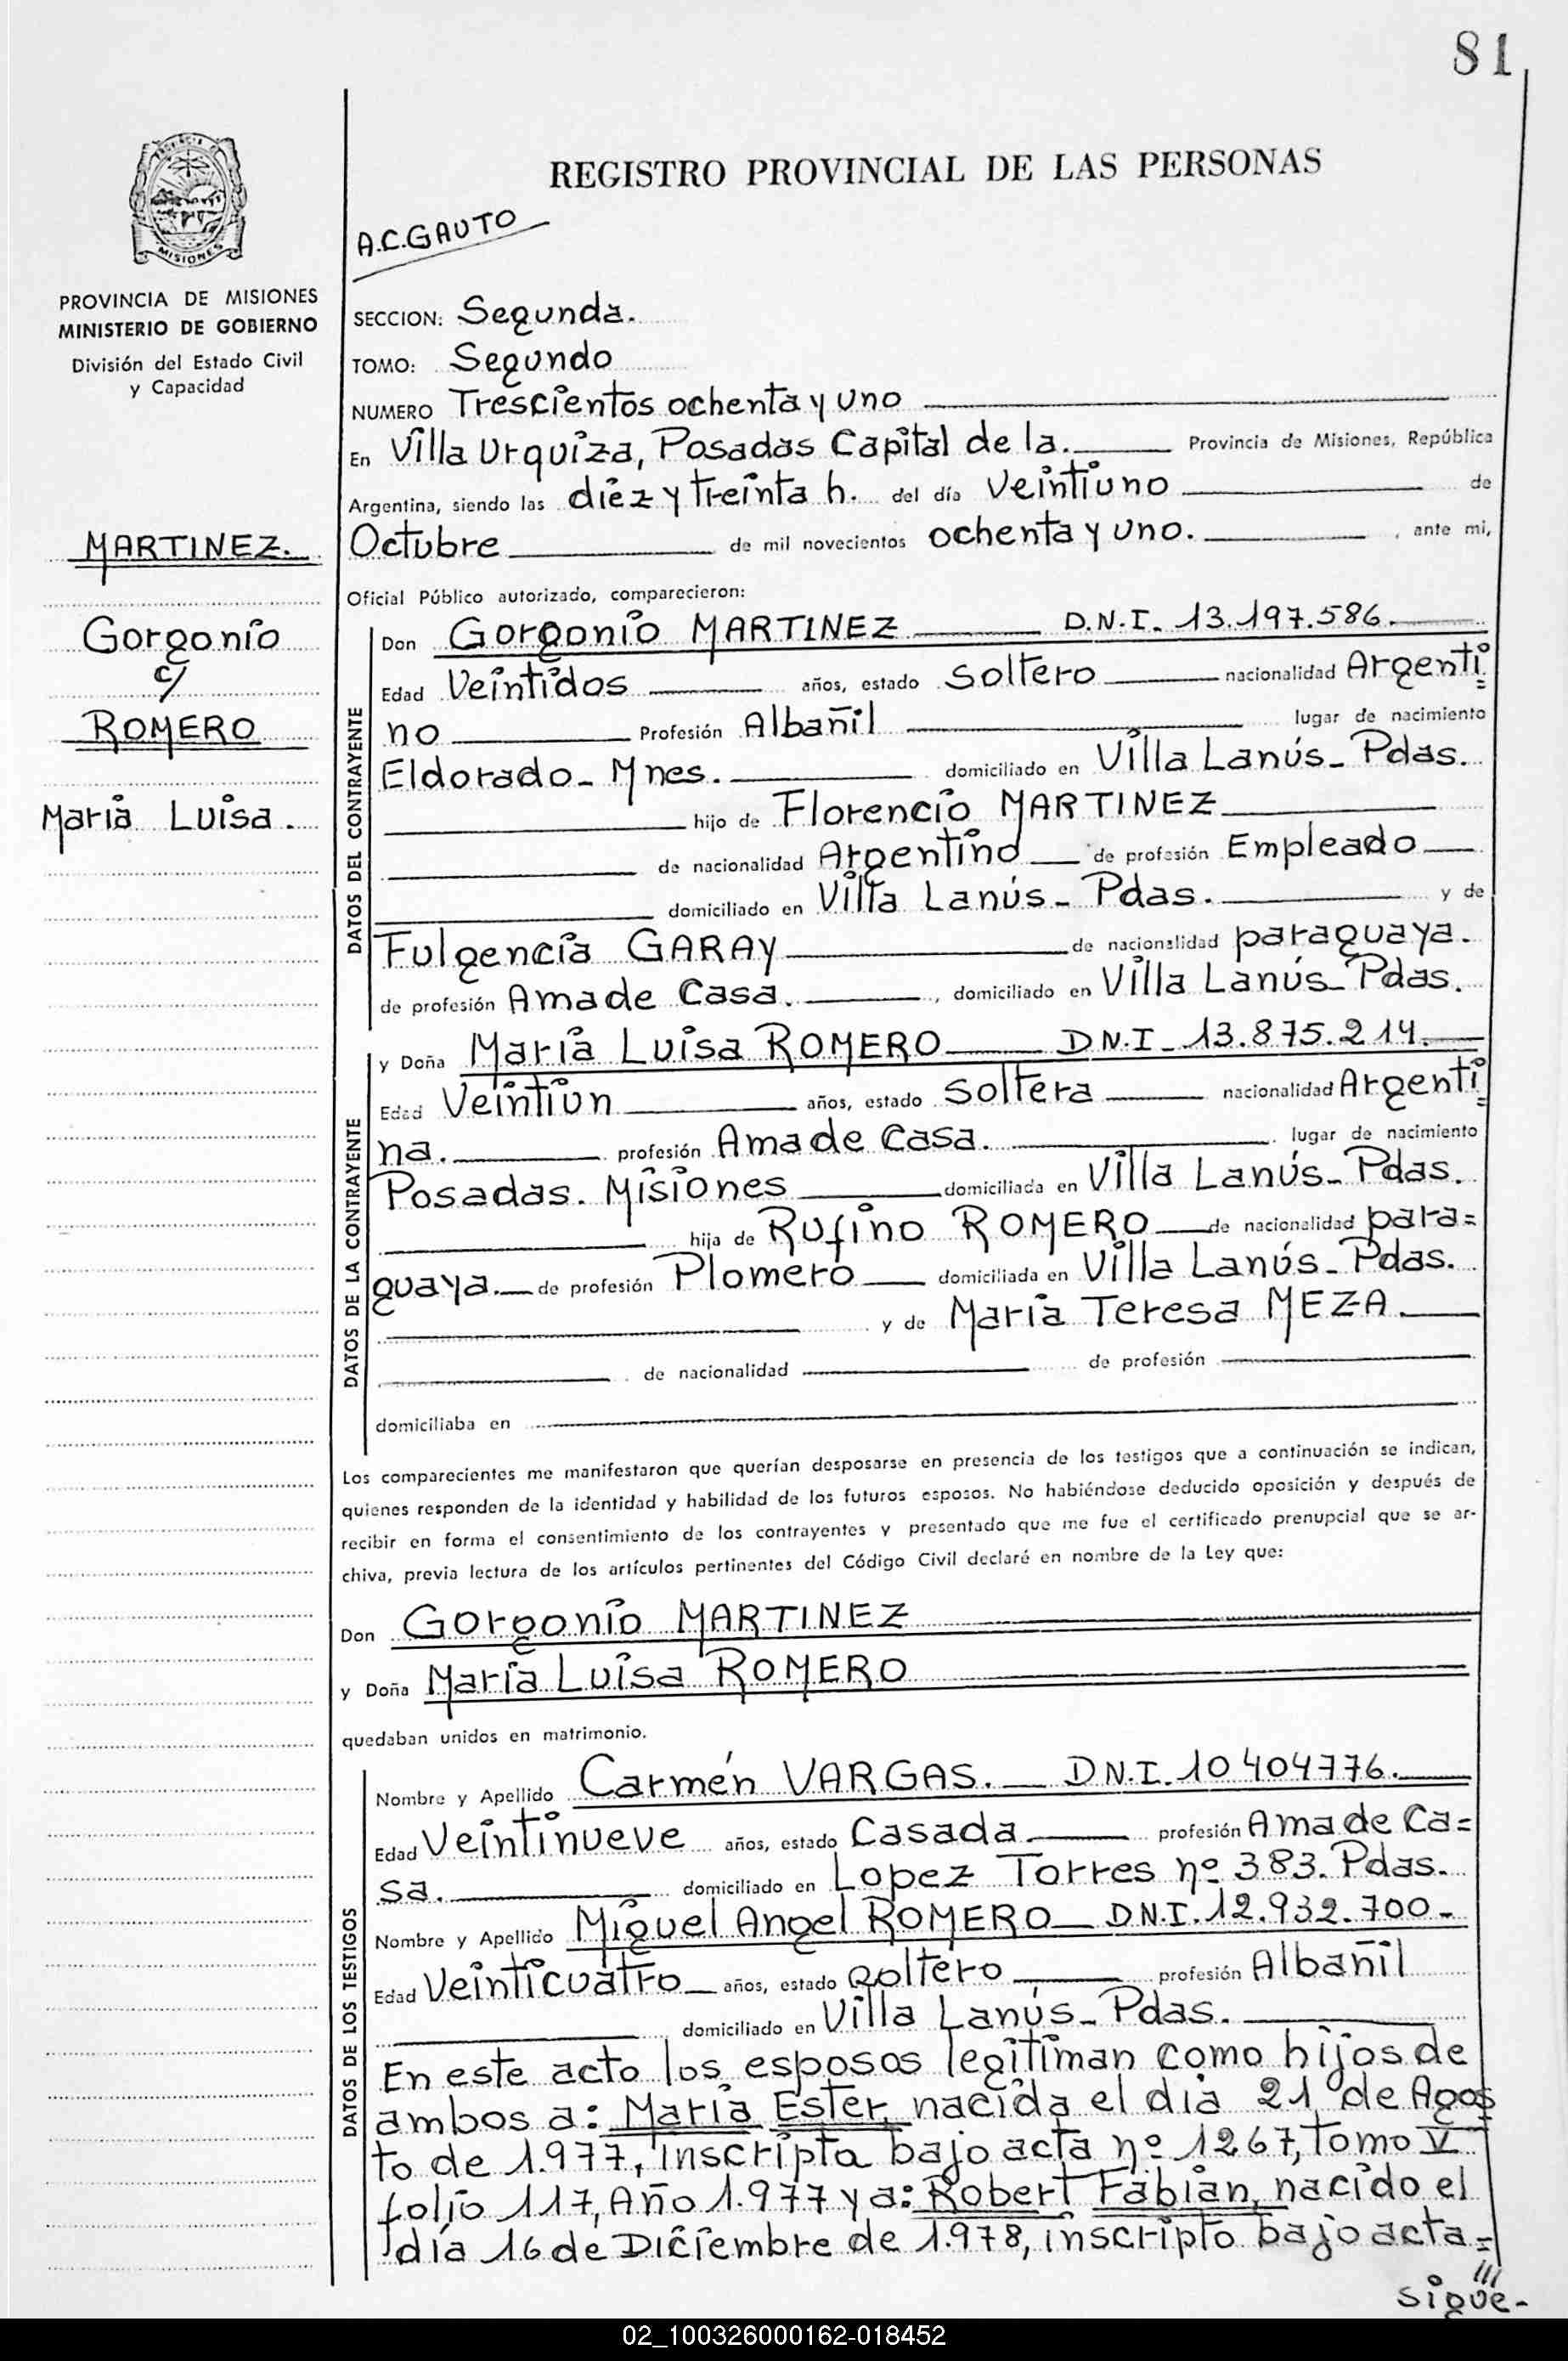 81
REGISTRO PROVINCIAL DE LAS PERSONAS
MISIONES
A.C.GAUTO
PROVINCIA DE MISIONES
MINISTERIO DE GOBIERNO
División del Estado Civil
y Capacidad
SECCION: Segunda.
TOMO: Segundo
NUMERO Trescientos ochenta y uno
En Villa Urquiza, Posadas Capital de la. Provincia de Misiones, República
Argentina, siendo las diez y treinta h. del día veintiuno de
Octubre de mil novecientos ochenta y uno. , ante mi,
Oficial Público autorizado, comparecieron:
MARTINEZ.
Gorgonio
c/
ROMERO
María Luisa.
DATOS DEL CONTRAYENTE
Don Gorgonio MARTINEZ D.N.I. 13.197.586.
Edad Veintidos años, estado Soltero nacionalidad Argenti
no Profesión Albañil lugar de nacimiento
Eldorado- Mnes. domiciliado en Villa Lanús- Pdas.
hijo de Florencio MARTINEZ
de nacionalidad Argentino de profesión Empleado
domiciliado en Villa Lanús- Pdas. y de
Fulgencia GARAY de nacionalidad paraguaya.
de profesión Ama de Casa. , domiciliado en Villa Lanús- Pdas.
DATOS DE LA CONTRAYENTE
y Doña María Luisa ROMERO D.N.I- 13.875.214.
Edad Veintiun años, estado Soltera nacionalidad Argenti
na. profesión Ama de Casa. lugar de nacimiento
Posadas. Misiones domiciliada en Villa Lanús- Pdas.
hija de Rufino ROMERO de nacionalidad para=
guaya. de profesión Plomero domiciliada en Villa Lanús- Pdas.
y de María Teresa MEZA.
de nacionalidad de profesión
domiciliaba en
Los comparecientes me manifestaron que querían desposarse en presencia de los testigos que a continuación se indican,
quienes responden de la identidad y habilidad de los futuros esposos. No habiéndose deducido oposición y después de
recibir en forma el consentimiento de los contrayentes y presentado que me fue el certificado prenupcial que se ar-
chiva, previa lectura de los artículos pertinentes del Código Civil declaré en nombre de la Ley que:
Don Gorgonio MARTINEZ
y Doña María Luisa ROMERO
quedaban unidos en matrimonio.
DATOS DE LOS TESTIGOS
Nombre y Apellido Carmén VARGAS. D.N.I. 10404776.
Edad Veintinueve años, estado Casada profesión Ama de Ca=
sa. domiciliado en Lopez Torres nº 383. Pdas.
Nombre y Apellido Miguel Angel ROMERO D.N.I. 12.932.700-
Edad Veinticuatro años, estado Soltero profesión Albañil
domiciliado en Villa Lanús- Pdas.
En este acto los esposos legitiman como hijos de
ambos a: María Ester, nacida el día 21 de Agos
to de 1.977, inscripta bajo acta nº 1267, Tomo V
folio 117, Año 1.977 y a: Robert Fabián, nacido el
día 16 de Diciembre de 1.978, inscripto bajo acta=
///
sigue-
02_100326000162-018452